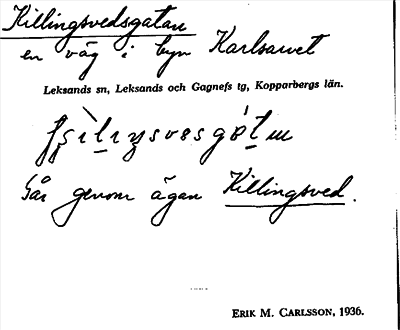 Killingsvedsgatan
en väg i byn Karlsarvet
Leksands sn, Leksands och Gagnefs tg, Kopparbergs län.
Går genom ägan Killingsved.
ERIK M. CARLSSON, 1936.